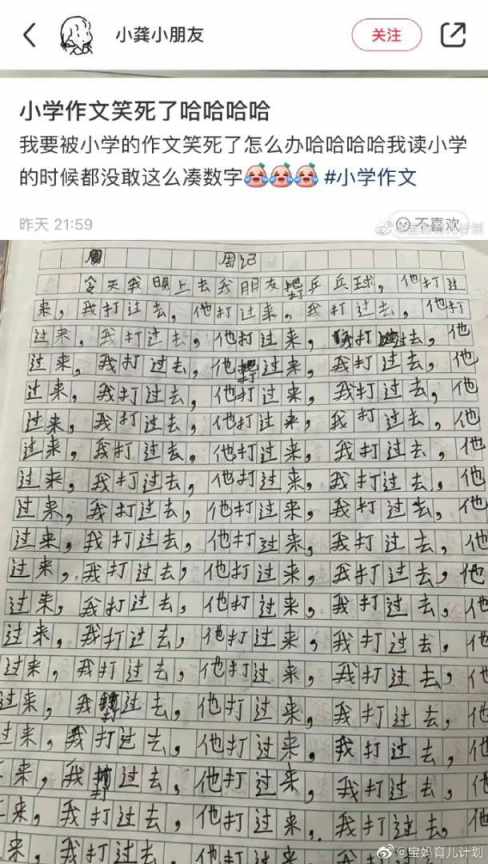 小龚小朋友 关注
小学作文笑死了哈哈哈哈
我要被小学的作文笑死了怎么办哈哈哈哈我读小学
的时候都没敢这么凑数字 #小学作文
昨天 21:59 不喜欢
周记
今天我晚上去我朋友打乒乓球，他打过
来，我打过去，他打过来，我打过去，他打
过来，我打过去，他打过来，我打过去，他
过来，我打过去，他打过来，我打过去，他
过来，我打过去，他打过来，我打过去，他
过来，我打过去，他打过来，我打过去，他
过来，我打过去，他打过来，我打过去，他
过来，我打过去，他打过来，我打过去，他
过来，我打过去，他打过来，我打过去，他
过来，我打过去，他打过来，我打过去，他
过来，我打过去，他打过来，我打过去，他
过来，我打过去，他打过来，我打过去，他
过来，我打过去，他打过来，我打过去，他
过来，我打过去，他打过来，我打过去，他
过来，我打过去，他打过来，我打过去，他
过来，我打过去，他打过来，我打过去，他
来，我打过去，他打过来，我打过去，他
来，我打过去，他打过来，我打过去，他
@宝妈育儿计划